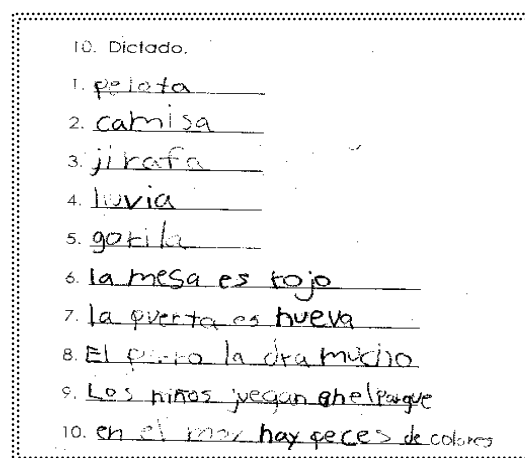 10. Dictado.
1. pelota
2. camisa
3. jirafa
4. lluvia
5. gorila
6. la mesa es rojo
7. la puerta es nueva
8. El perro la dra mucho
9. Los niños juegan enhelparque
10. en el mar hay peces de colores